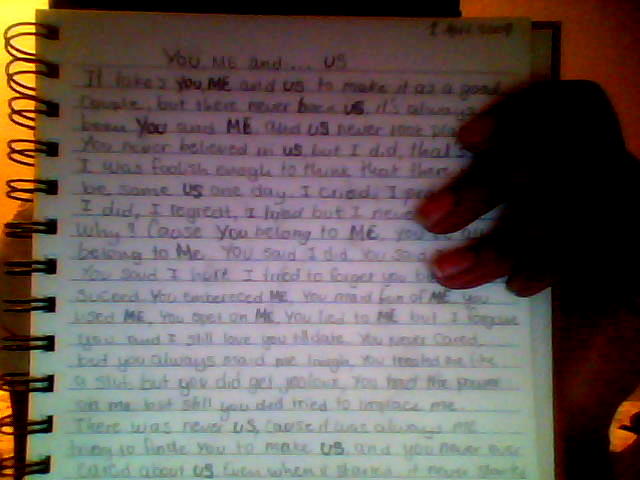 You ME and.... US
It takes you ME and US to make it as a good
couple, but there never been US, it's always
been You and ME and US never took
You never believed in US but I did, that's
I was foolish enogh to think that there
be some US one day. I cried, I
I did, I regrett, I lyed but I never
why? Cause You belong to ME, you
belong to Me. You said I did. You said
You said I hurt. I tried to forget you
suceed You embereced ME, You maid fun of ME you
used ME, You spet on ME, You lied to ME but I forgave
you and I still love you till date. You never cared,
but you always maid me laugh, You treated me like
a slut, but you did get jealous, You had the power
on me but still you did tried to implace me.
There was never US, cause it was always ME
trying to finde you to make US, and you never ever
cared about US. Even when it started it never started